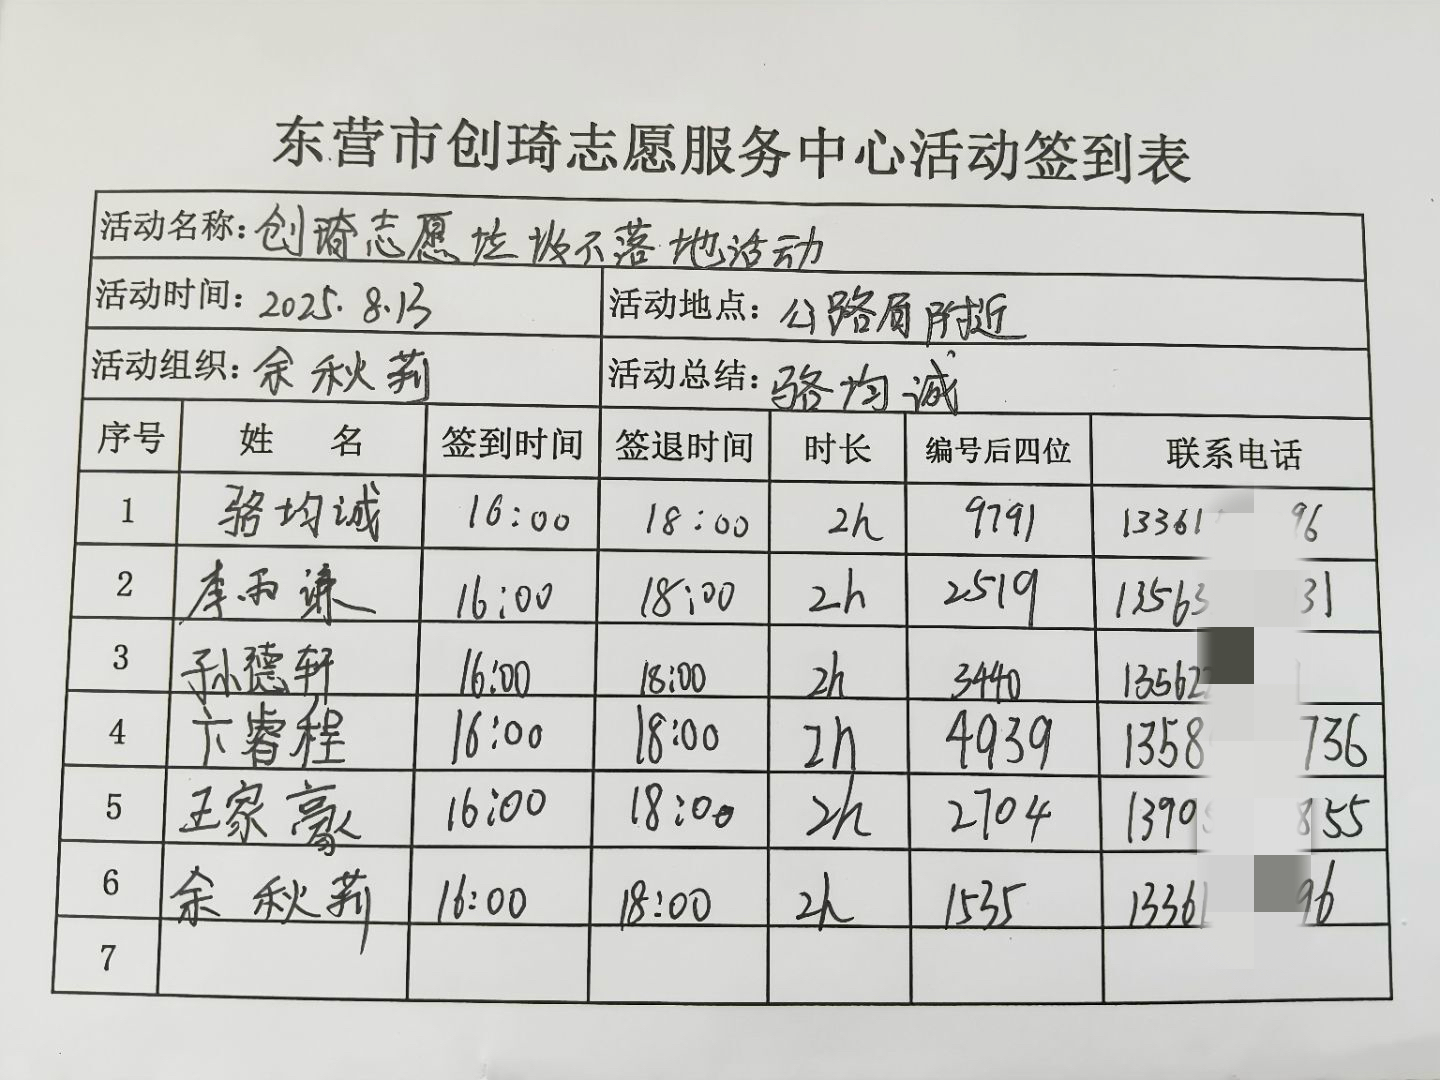 东营市创琦志愿服务中心活动签到表
活动名称：创琦志愿垃圾不落地活动
活动时间：2025.8.13 活动地点：公路局附近
活动组织：余秋莉 活动总结：骆均诚
序号 姓 名 签到时间 签退时间 时长 编号后四位 联系电话
1 骆均诚 16:00 18:00 2h 9791 13361 96
2 李雨谦 16:00 18:00 2h 2519 13563 31
3 孙德轩 16:00 18:00 2h 3440 13562
4 卞睿程 16:00 18:00 2h 4939 1358 736
5 王家豪 16:00 18:00 2h 2704 1390 855
6 余秋莉 16:00 18:00 2h 1535 1336 96
7